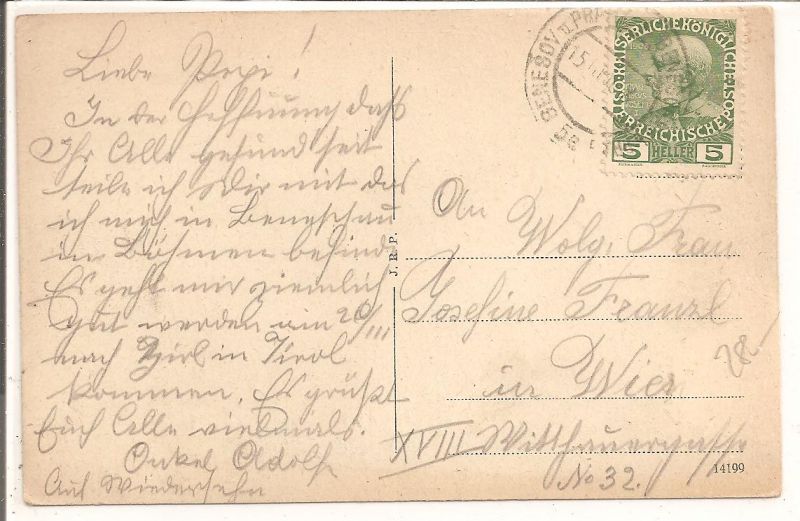 Liebe Pepi!
In der Hoffnung dass
Ihr Alle gesund seit
teile ich Dir mit das
ich mich in Beneschau
in Böhmen befinde
Es geht mir ziemlich
gut werden am 20/III
nach Zirl in Tirol
kommen. Es grüßt
Euch Alle vielmals.
Onkel Adolf
Auf Wiedersehn
J. R. P.
BENEŠOV U PR
15
KAISERLICHE KÖNIGLICHE
ÖSTERREICHISCHE POST
5 HELLER 5
An
Wolg. Frau
Josefine Franzl
in Wien
XVIII Witthauergasse
No 32.
28
14199